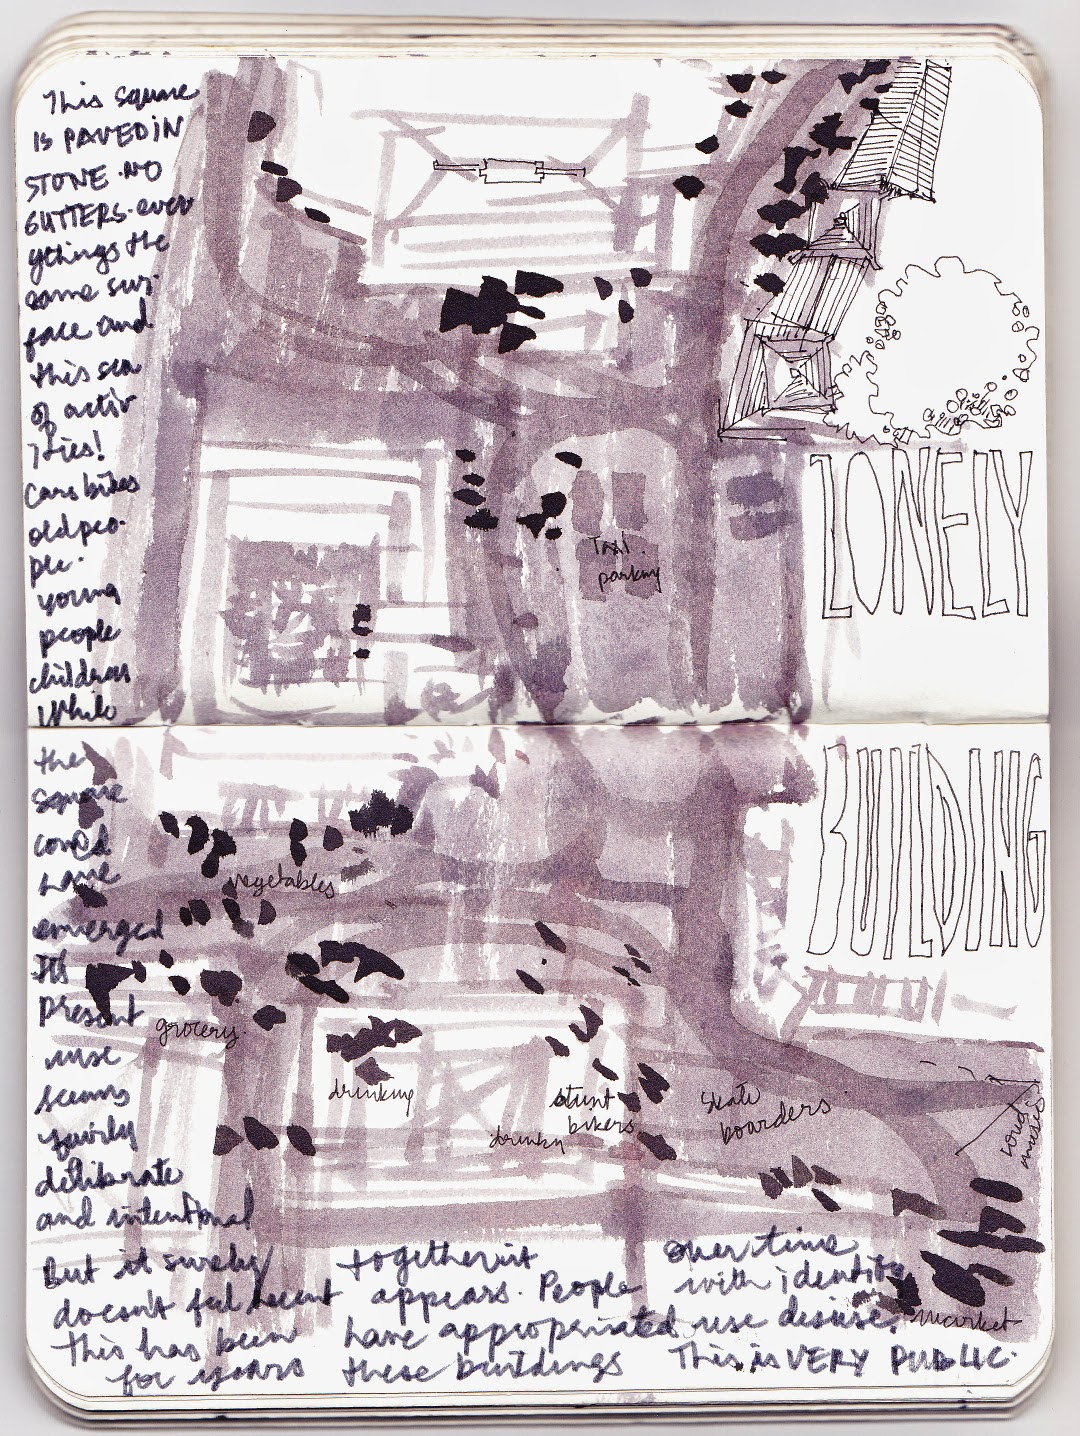 This square
IS PAVED IN
STONE. NO
GUTTERS. ever
ythings the
same sur-
face and
this sea
of activ
ities!
Cars bikes
old peo-
ple.
young
people
children
While
the
square
could
have
emerged
its
present
use
seems
fairly
deliberate
and intentional
But it surely
doesn't feel recent
This has been
for years
together it
appears. People
have appropriated
these buildings
over time
with identity
use disuse.
This is VERY PUBLIC.
LONELY
BUILDING
Taxi.
parking
vegetables
grocery.
drinking
stunt
bikers
drinking
skate
boarders
loud
music
market